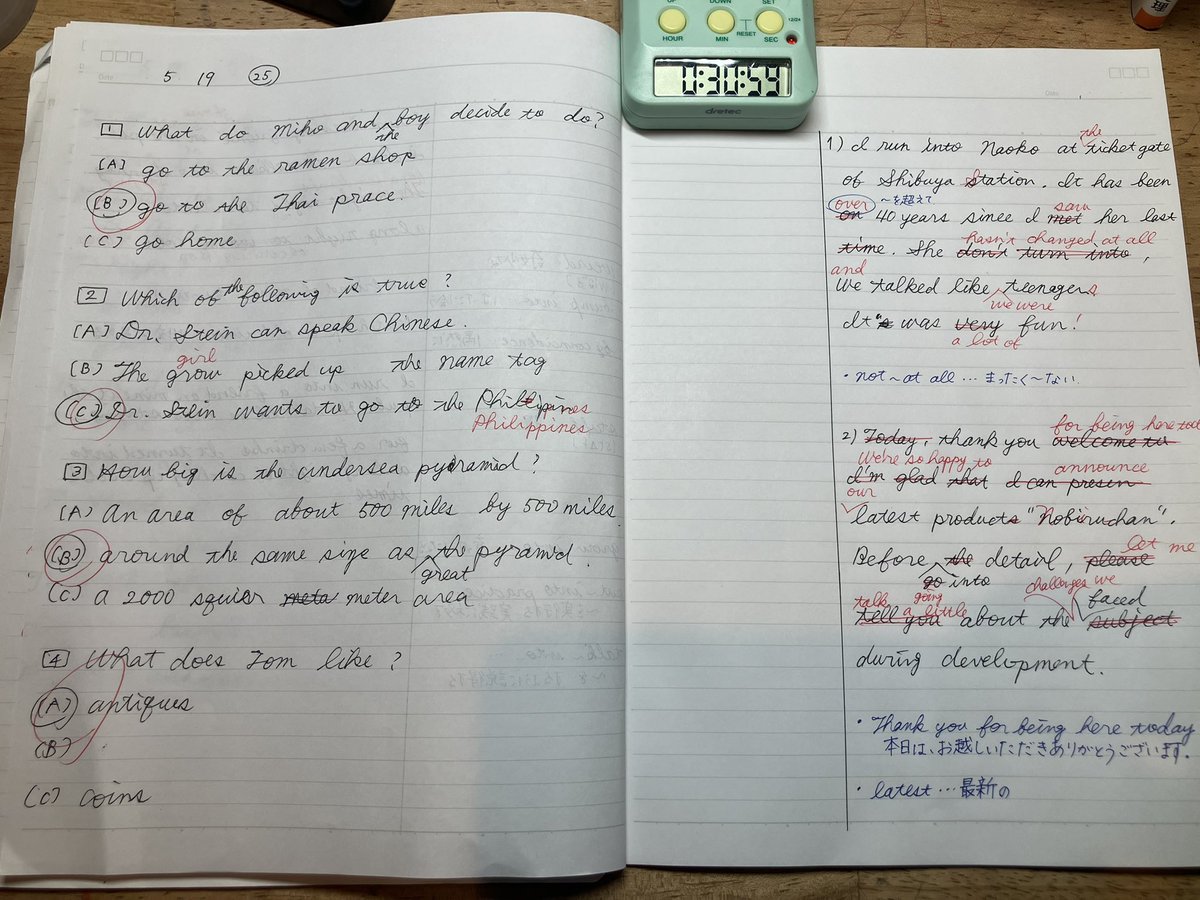 5 19 25
1 What do Miho and the boy decide to do?
(A) go to the ramen shop
(B) go to the Thai prace.
(C) go home
2 Which of the following is true?
(A) Dr. Stein can speak Chinese.
girl
(B) The grow picked up the name tag
(C) Dr. Stein wants to go to the Philippines
Philippines
3 How big is the undersea pyramid?
(A) An area of about 500 miles by 500 miles.
(B) around the same size as the great pyramid.
(C) a 2000 squier meta meter area
4 What does Tom like?
(A) antiques
(B)
(C) coins
UP DOWN SET
HOUR MIN RESET SEC 12/24
0:30:59
dretec
理
Date
1) I run into Naoko at the ticket gate
of Shibuya Station. It has been
over ~を超えて saw
on 40 years since I met her last
hasn't changed at all
time. She don't turn into,
and
we talked like teenagers
we were
It was very fun!
a lot of
・not~at all…まったく~ない
for being here
2) Today, thank you welcome to
We're so happy to announce
I'm glad that I can presen
our
latest products "Nobiruchan".
let me
Before the detail, please
go into
going
challenges we
talk a little faced
tell you about the subject
during development.
・Thank you for being here today
本日は、お越しいただきありがとうございます.
・latest…最新の